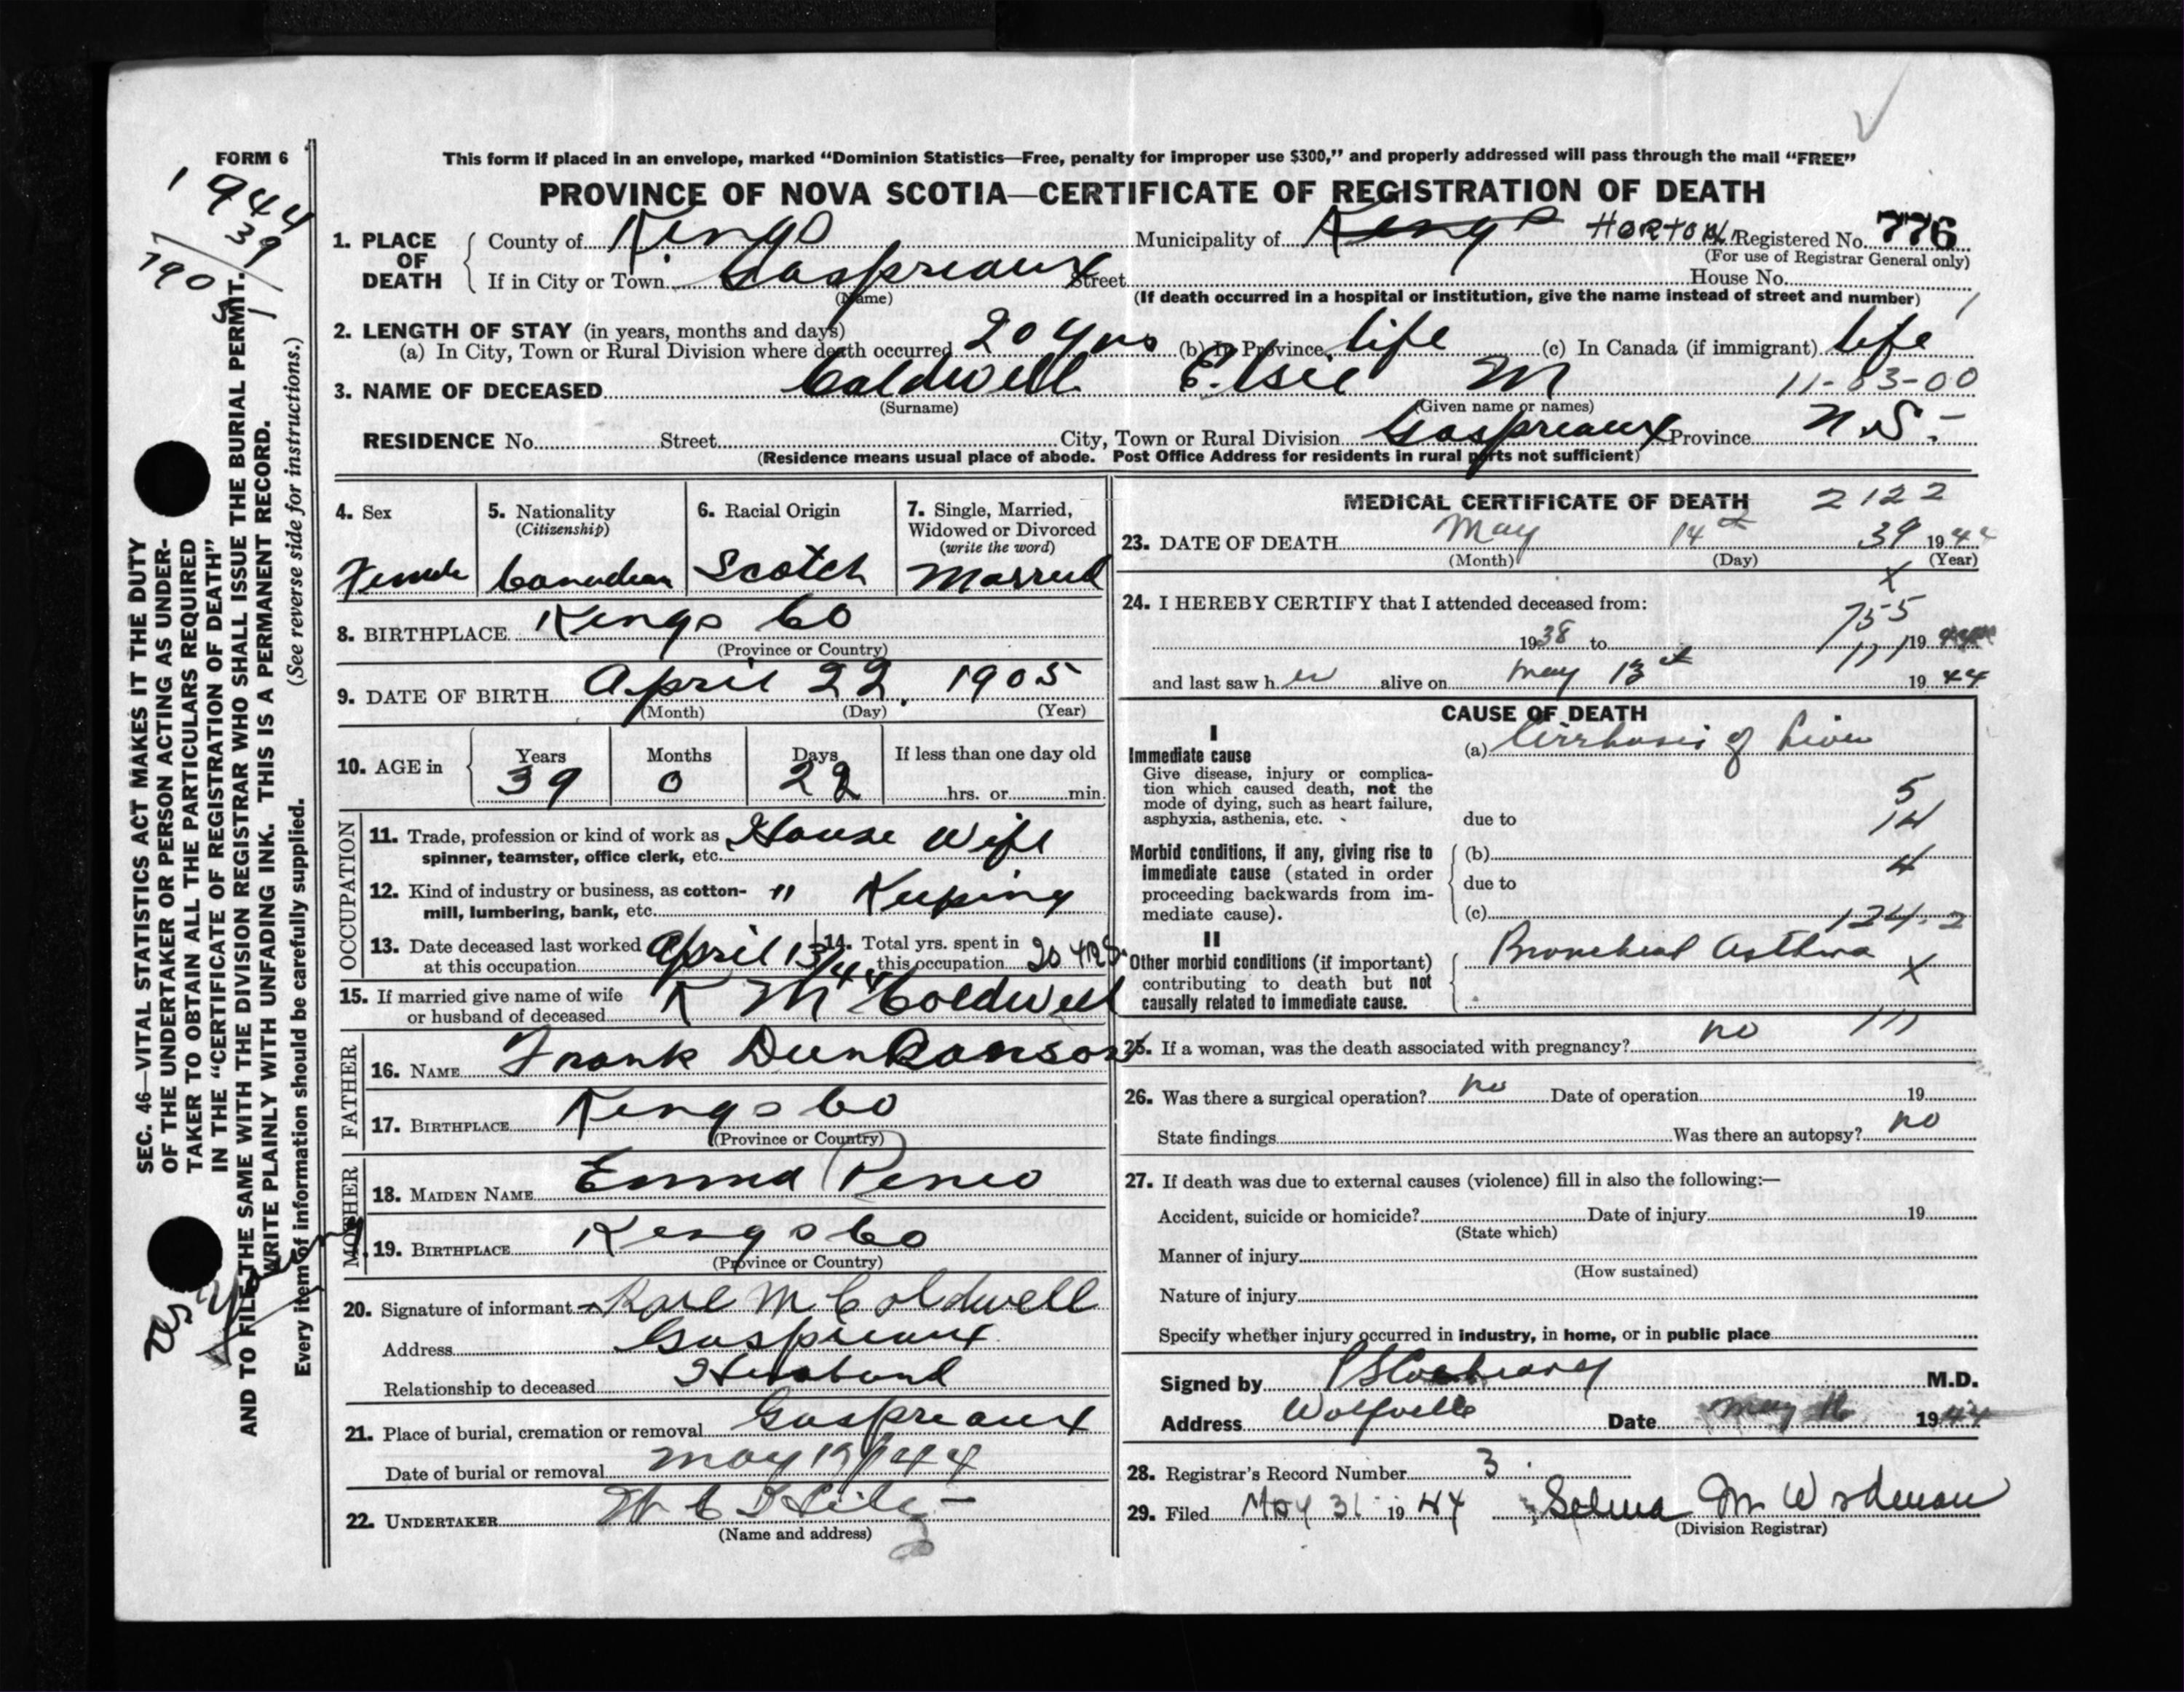 FORM 6
This form if placed in an envelope, marked “Dominion Statistics—Free, penalty for improper use $300,” and properly addressed will pass through the mail “FREE”
PROVINCE OF NOVA SCOTIA—CERTIFICATE OF REGISTRATION OF DEATH
1944
39
190
SEC. 46—VITAL STATISTICS ACT MAKES IT THE DUTY
OF THE UNDERTAKER OR PERSON ACTING AS UNDER-
TAKER TO OBTAIN ALL THE PARTICULARS REQUIRED
IN THE “CERTIFICATE OF REGISTRATION OF DEATH”
AND TO FILE THE SAME WITH THE DIVISION REGISTRAR WHO SHALL ISSUE THE BURIAL PERMIT.
WRITE PLAINLY WITH UNFADING INK. THIS IS A PERMANENT RECORD.
Every item of information should be carefully supplied. (See reverse side for instructions.)
1. PLACE OF DEATH
County of Kings Municipality of Kings HORTON Registered No. 776
(For use of Registrar General only)
If in City or Town Gaspreaux Street House No.
(Name) (If death occurred in a hospital or institution, give the name instead of street and number)
2. LENGTH OF STAY (in years, months and days)
(a) In City, Town or Rural Division where death occurred 20 yrs (b) In Province life (c) In Canada (if immigrant) life
3. NAME OF DECEASED Coldwell Elsie M 11-03-00
(Surname) (Given name or names)
RESIDENCE No. Street City, Town or Rural Division Gaspreaux Province N.S.
(Residence means usual place of abode. Post Office Address for residents in rural parts not sufficient)
4. Sex
Female
5. Nationality
(Citizenship)
Canadian
6. Racial Origin
Scotch
7. Single, Married,
Widowed or Divorced
(write the word)
Married
8. BIRTHPLACE Kings Co
(Province or Country)
9. DATE OF BIRTH April 22, 1905
(Month) (Day) (Year)
10. AGE in
Years Months Days If less than one day old
39 0 22 hrs. or min.
OCCUPATION
11. Trade, profession or kind of work as House Wife
spinner, teamster, office clerk, etc.
12. Kind of industry or business, as cotton- " Keeping
mill, lumbering, bank, etc.
13. Date deceased last worked April 13/44
at this occupation
14. Total yrs. spent in
this occupation 20 YRS.
15. If married give name of wife
or husband of deceased K M Coldwell
FATHER
16. NAME Frank Dunkanson
17. BIRTHPLACE Kings Co
(Province or Country)
MOTHER
18. MAIDEN NAME Emma
19. BIRTHPLACE Kings Co
(Province or Country)
20. Signature of informant Karl M Coldwell
Address Gaspreaux
Relationship to deceased Husband
21. Place of burial, cremation or removal Gaspreaux
Date of burial or removal May 19/44
22. UNDERTAKER
(Name and address)
MEDICAL CERTIFICATE OF DEATH 2122
23. DATE OF DEATH May 14th 39 1944
(Month) (Day) (Year)
x
24. I HEREBY CERTIFY that I attended deceased from:
755
1938 to 19
111
and last saw her alive on May 13th 1944
CAUSE OF DEATH
I
Immediate cause
Give disease, injury or complica-
tion which caused death, not the
mode of dying, such as heart failure,
asphyxia, asthenia, etc.
(a) Cirrhosis of Liver
5
due to 14
Morbid conditions, if any, giving rise to
immediate cause (stated in order
proceeding backwards from im-
mediate cause).
(b)
4
due to
(c) 124.2
II
Other morbid conditions (if important)
contributing to death but not
causally related to immediate cause.
Bronchial Asthma
x
111
25. If a woman, was the death associated with pregnancy? no
26. Was there a surgical operation? no Date of operation 19
State findings Was there an autopsy? no
27. If death was due to external causes (violence) fill in also the following:—
Accident, suicide or homicide? Date of injury 19
(State which)
Manner of injury
(How sustained)
Nature of injury
Specify whether injury occurred in industry, in home, or in public place
Signed by M.D.
Address Wolfville Date May 16 1944
28. Registrar's Record Number 3
29. Filed May 31 1944 Selma M Wodman
(Division Registrar)